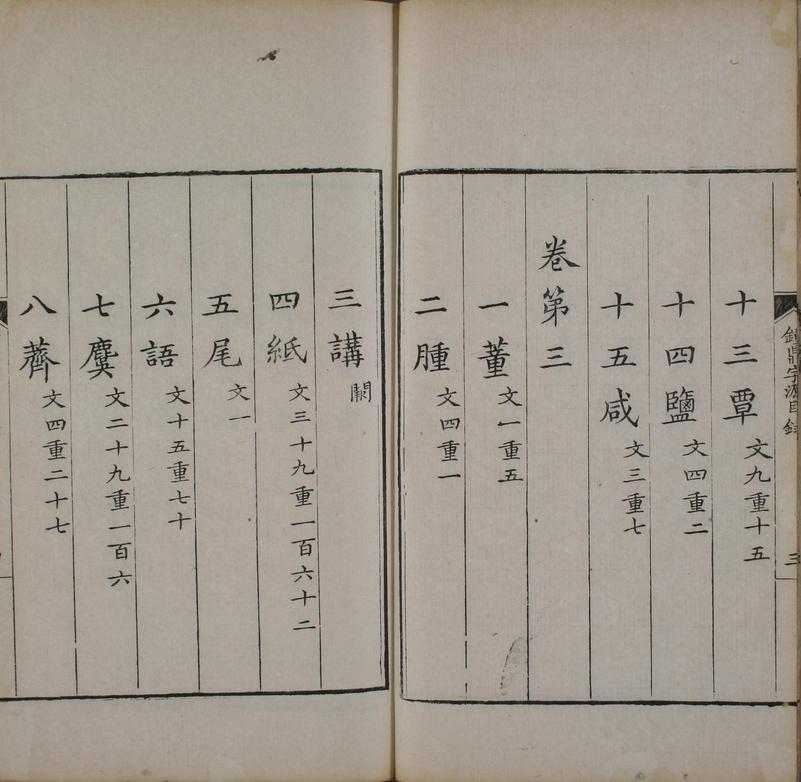 鐘鼎字源目錄
三
十三覃文九重十五
十四鹽文四重二
十五咸文三重七
卷第三
一董文一重五
二腫文四重一
三講闕
四紙文三十九重一百六十二
五尾文一
六語文十五重七十
七麌文二十九重一百六
八薺文四重二十七